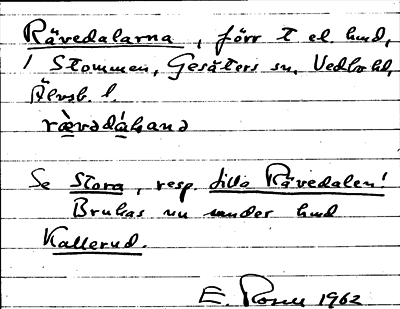 Rävedalarna, förr t. el. hmd,
/ Stommen, Gesäters sn, Vedbo hd,
Älvsb. l.
rævədàɫana
Se Stora, resp. Lilla Rävedalen!
Brukas nu under hmd
Kallerud.
E. Rosen 1962